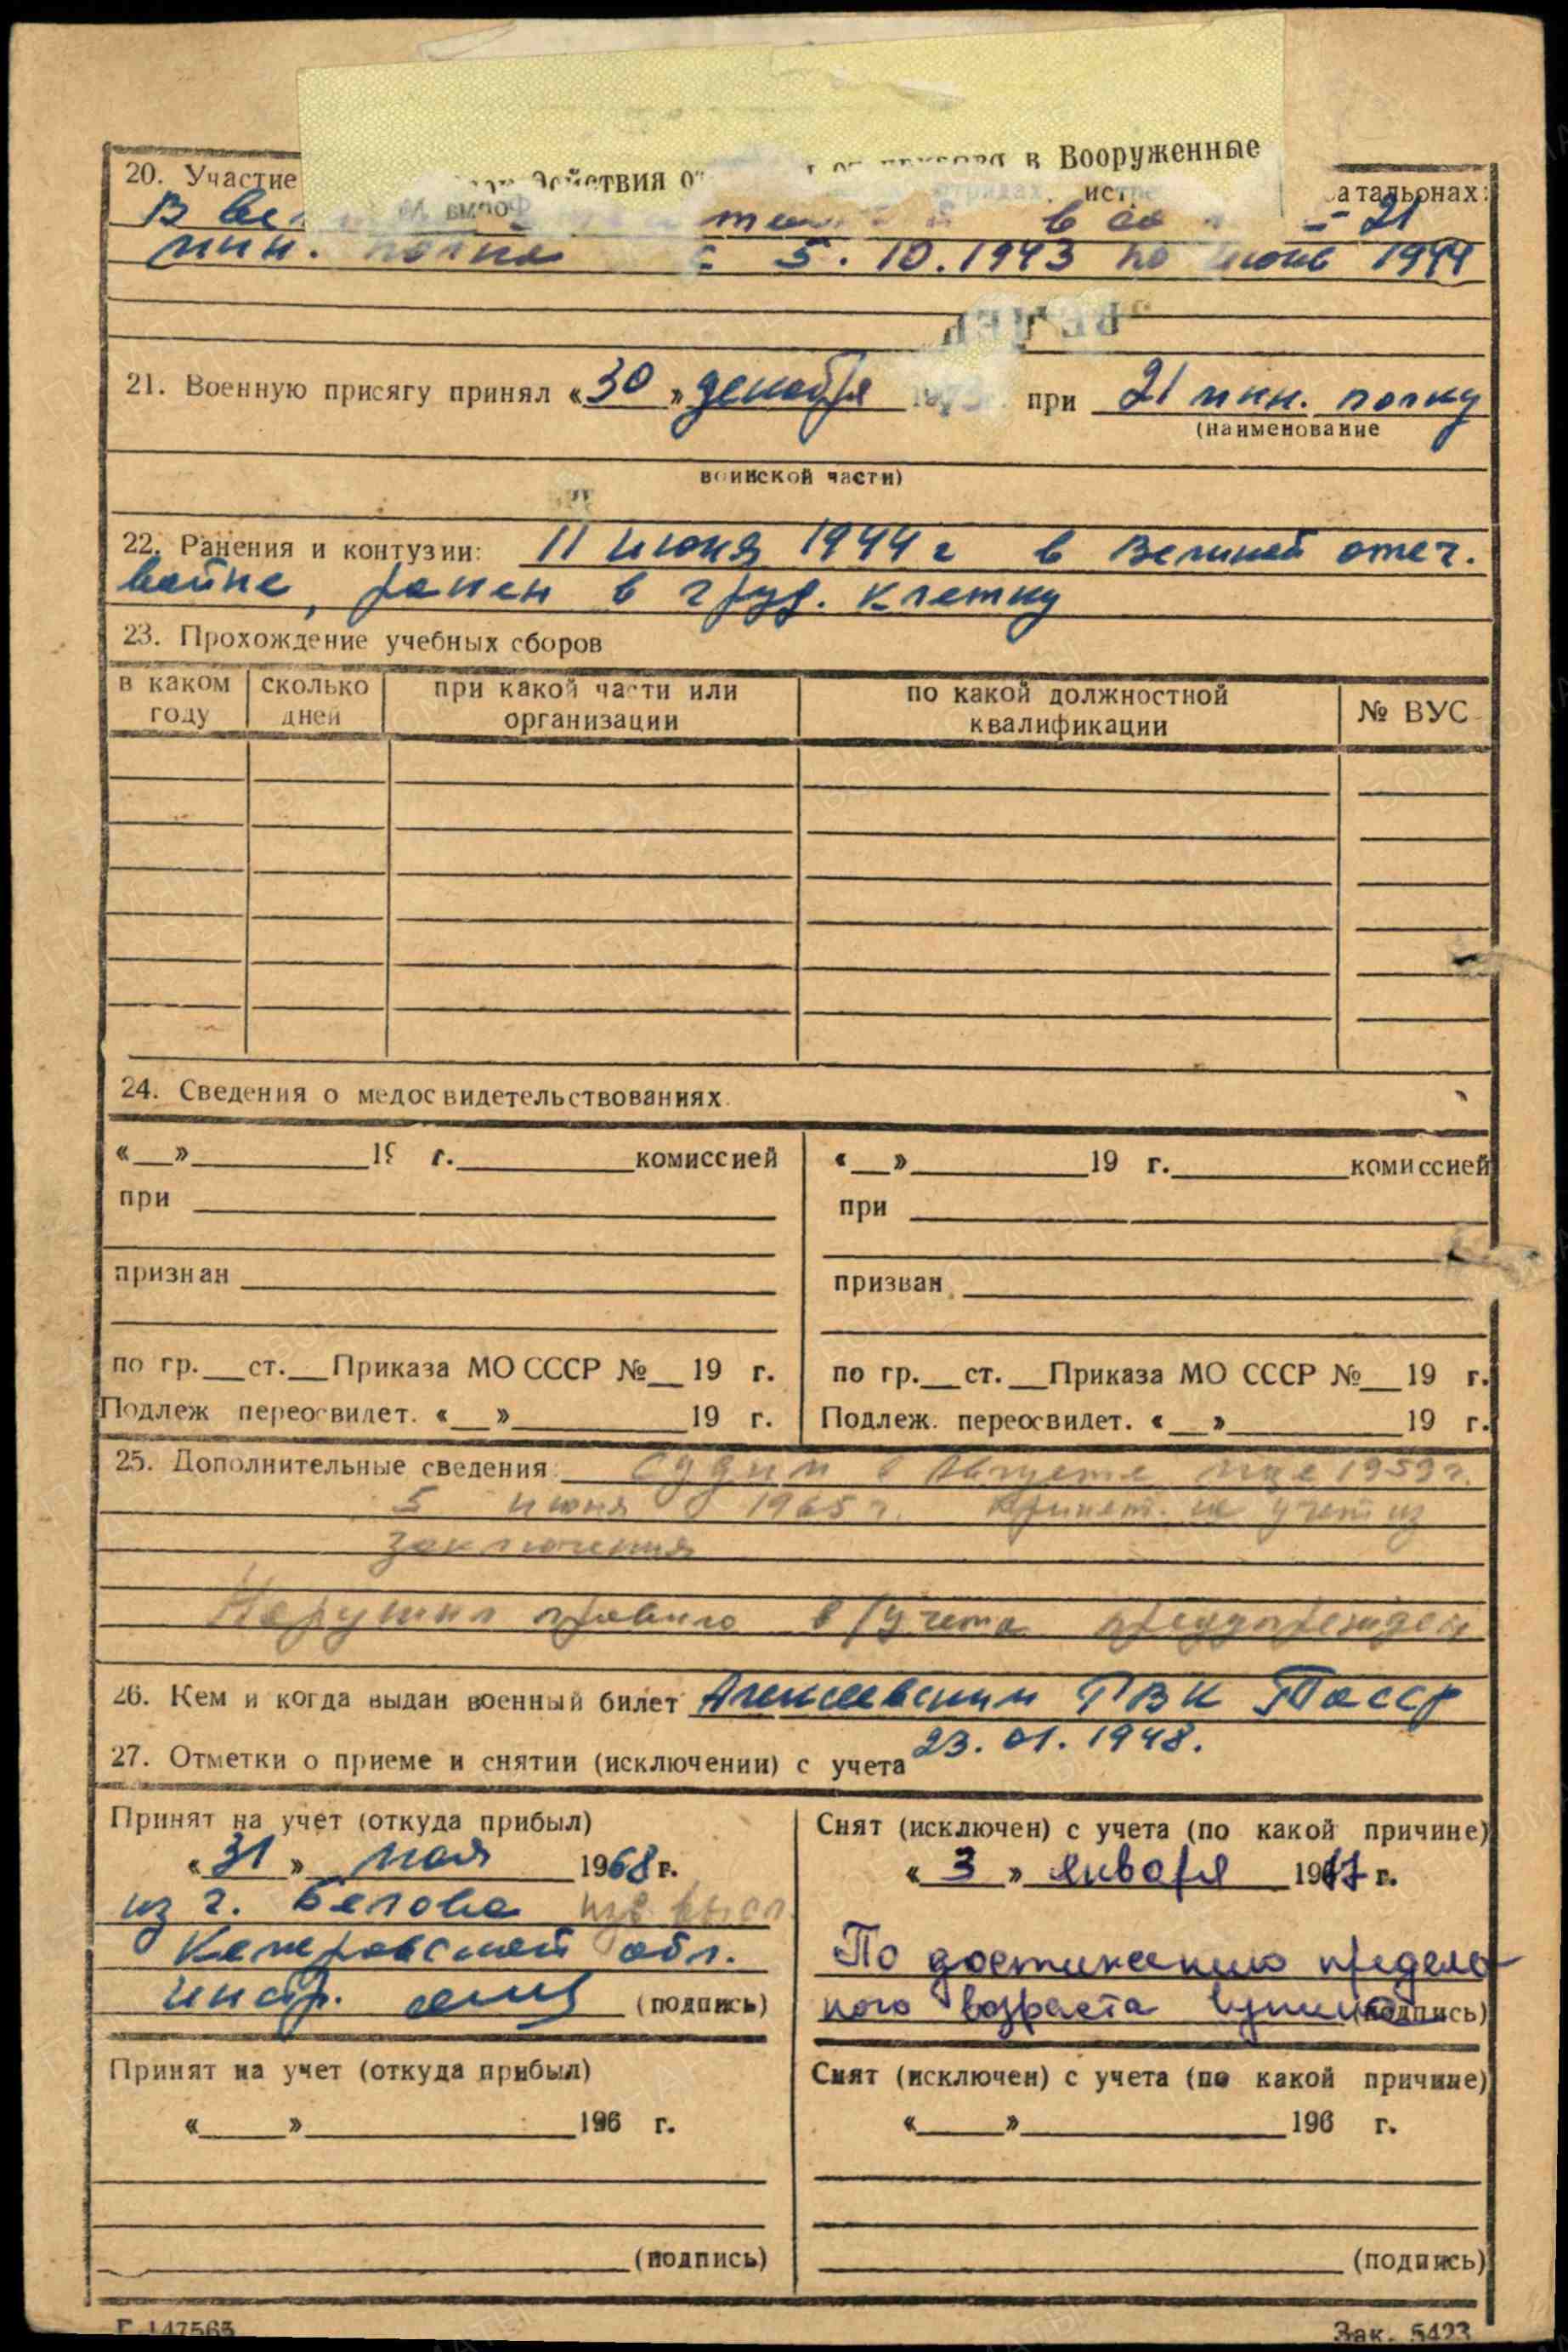 в Вооруженные
20. Участие
атальонах:
21
мин. полка с 5. 10. 1943 по июнь 1944
21. Военную присягу принял «30» декабря при 21 мин. полку
(наименование
воинской части)
22. Ранения и контузии: 11 июня 1944 г в Великой отеч.
войне, ранен в груд. клетку
23. Прохождение учебных сборов
в каком году сколько дней при какой части или организации по какой должностной квалификации № ВУС
24. Сведения о медосвидетельствованиях
«__»____19 г.____комиссией «__»____19 г.____комиссией
при при
признан призван
по гр.__ст.__Приказа МО СССР №__19 г. по гр.__ст.__Приказа МО СССР №__19 г.
Подлеж переосвидет. «__»____19 г. Подлеж. переосвидет. «__»____19 г.
25. Дополнительные сведения: Судим в августе 1959 г.
5 июня 1965 г. принят на учет из
заключения
Нарушил правила в/учета предупрежден
26. Кем и когда выдан военный билет Алексеевским РВК ТАССР
23. 01. 1948.
27. Отметки о приеме и снятии (исключении) с учета
Принят на учет (откуда прибыл) Снят (исключен) с учета (по какой причине)
«31» мая 1968 г. «3» января 19 г.
из г. Белова
Кемеровской обл. По достижению предель
инстр. (подпись) ного возраста (подпись)
Принят на учет (откуда прибыл) Снят (исключен) с учета (по какой причине)
«__»____196 г. «__»____196 г.
(подпись) (подпись)
Г 147565 Зак. 5423